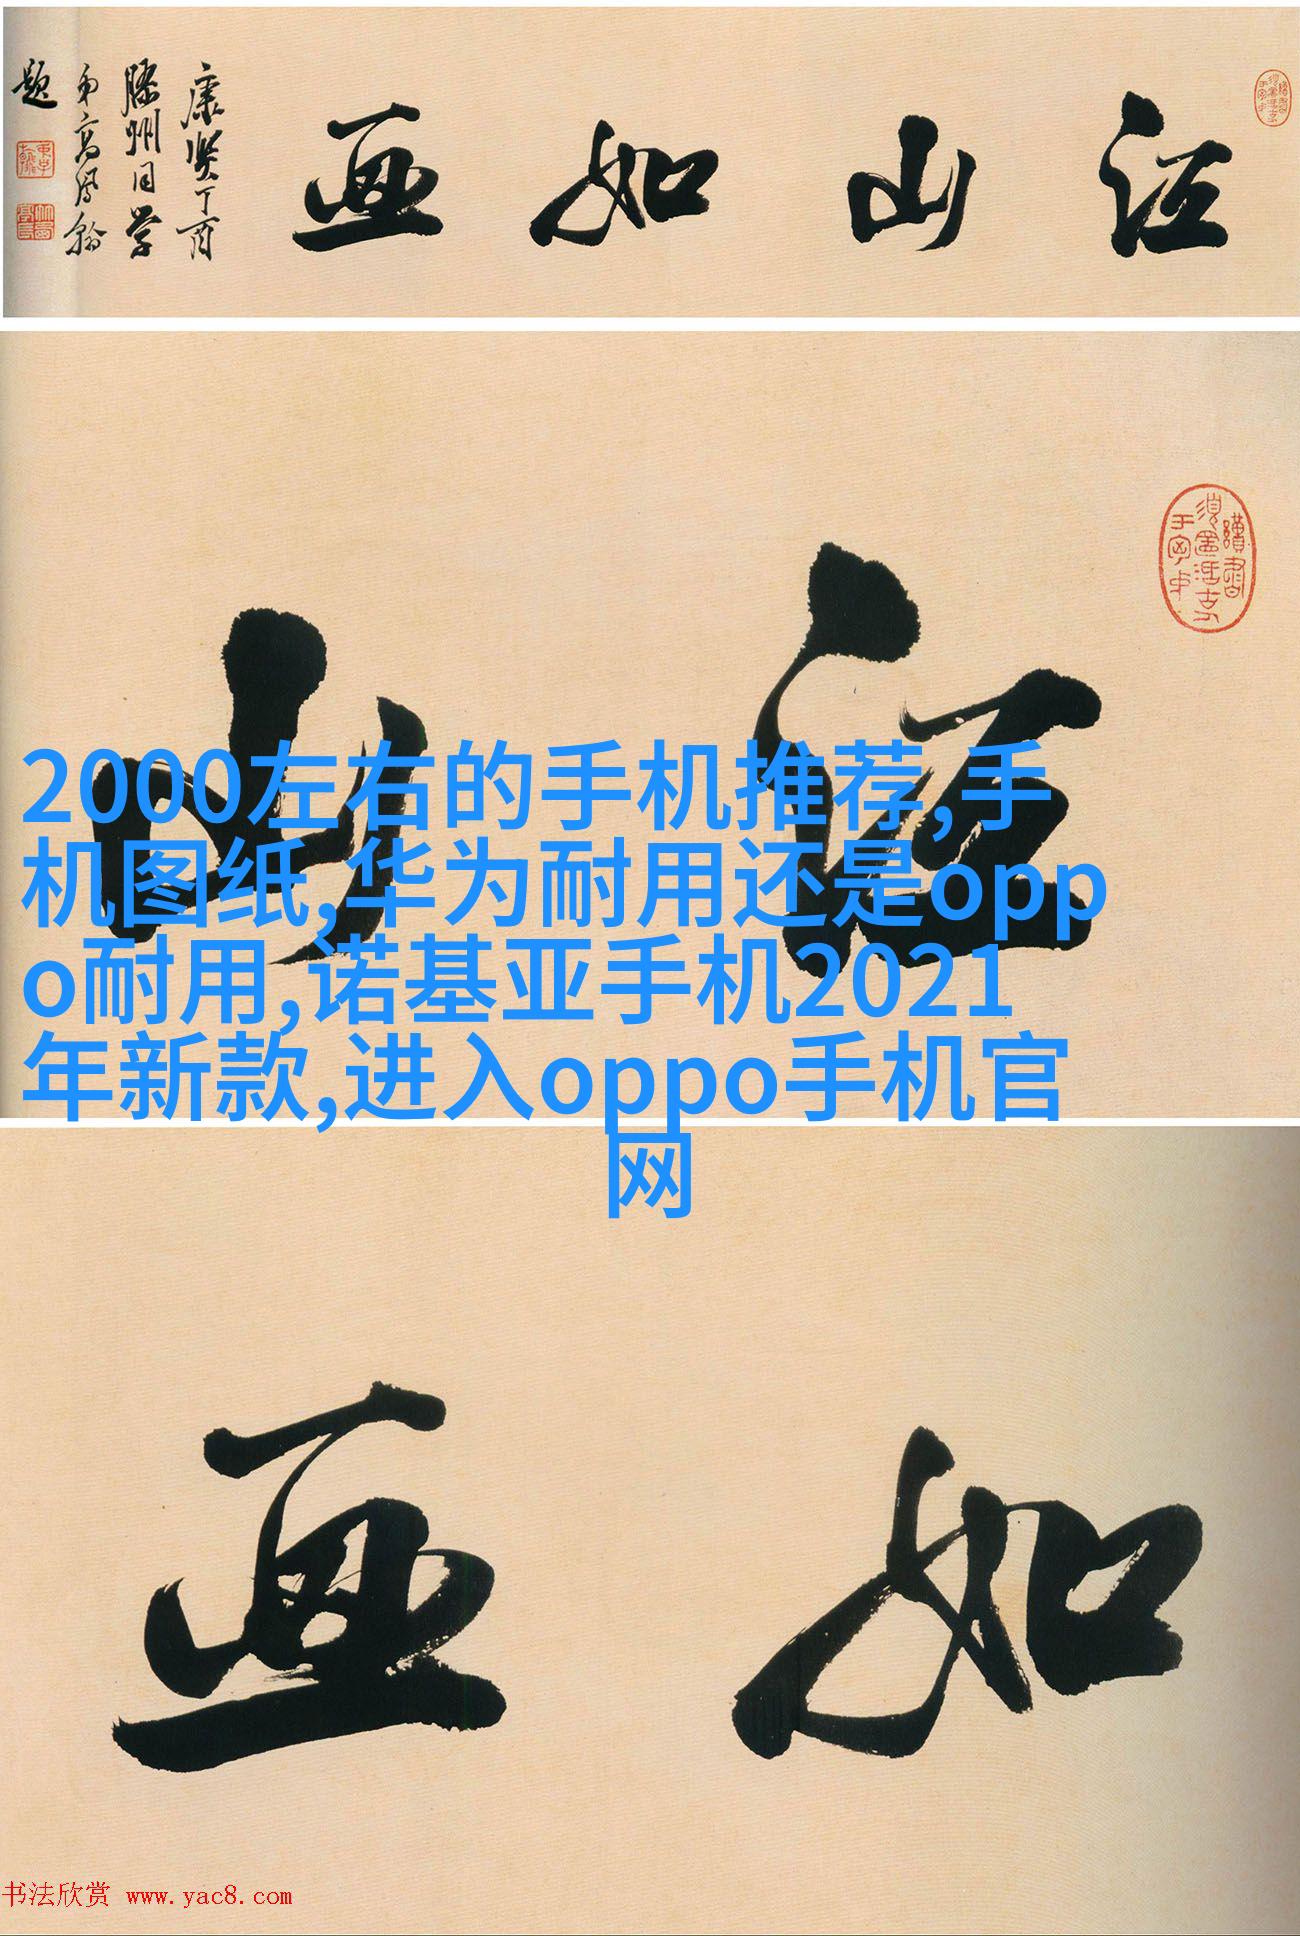 江山如画
康熙丁酉
滕州同学
弟高凤翰
题
江山
2000左右的手机推荐,手
机图纸,华为耐用还是opp
o耐用,诺基亚手机2021
年新款,进入oppo手机官
网
如画
书法欣赏 www.yac8.com